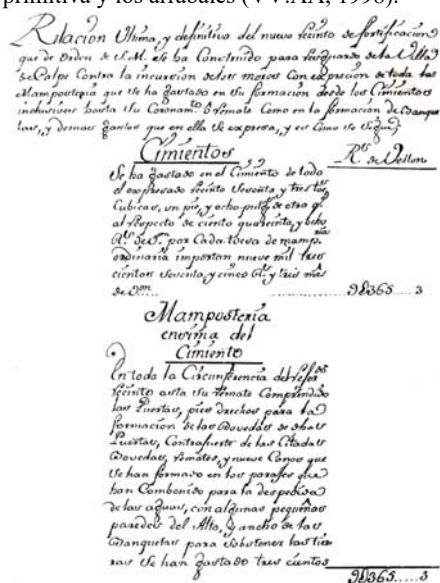 primitiva y los arrabales (VV.AA, 1998).
Relacion Ultima, y definitiva del nuevo recinto de fortificacion
que de Orden de S.M. se ha Construido para resguardo de la Villa
de Calpe Contra la incursion de los moros Con exprecion de toda la
Mamposteria que se ha gastado en su formacion desde los Cimientos
inclusives hasta su Coronam.to ô remate Como en la formacion de Banque
tas, y demas gastos que en ella se expresa, y es Como se sigue
Cimientos
R.s de Vellon
Se ha gastado en el Cimiento de todo
el expresado recinto sesenta y tres tues.s
Cubicas, un pie, y ocho pulg.s de otra q.e
al respecto de ciento quarenta, y ocho
R.s de V.on por Cada tuesa de mamp.ria
ordinaria importan nueve mil tres
cientos sesenta, y cinco R.s y tres mrs
de V.on ..... 9U365 .... 3
Mamposteria
ensima del
Cimiento
En toda la Circunferencia del refer.do
recinto asta su remate Comprendido
las Puertas, pies drechos para la
formacion de las Bovedas de dhas
Puertas, Contrafuerte de las Citadas
Bovedas, remates, y nueve Canos que
se han formado en los parajes que
han Combenido para la despedida
de las aguas, con algunas pequeñas
paredes del Alto, y ancho de las
Banquetas para sobstener las tier
ras se han gastado tres cientos
9U365 ..... 3